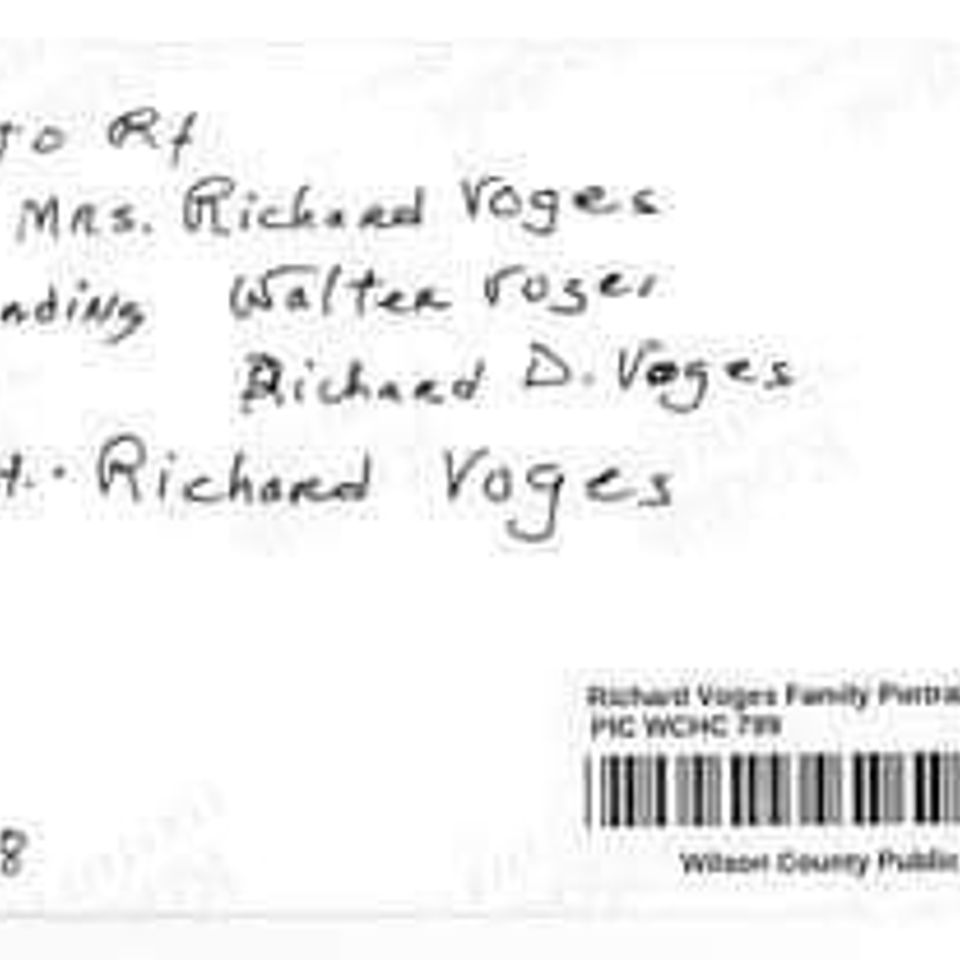 to Rt
Mrs. Richard Voges
nding Walter Voges
Richard D. Voges
t. Richard Voges
Richard Voges Family Portra
PIC WCHC 799
Wilson County Public
8